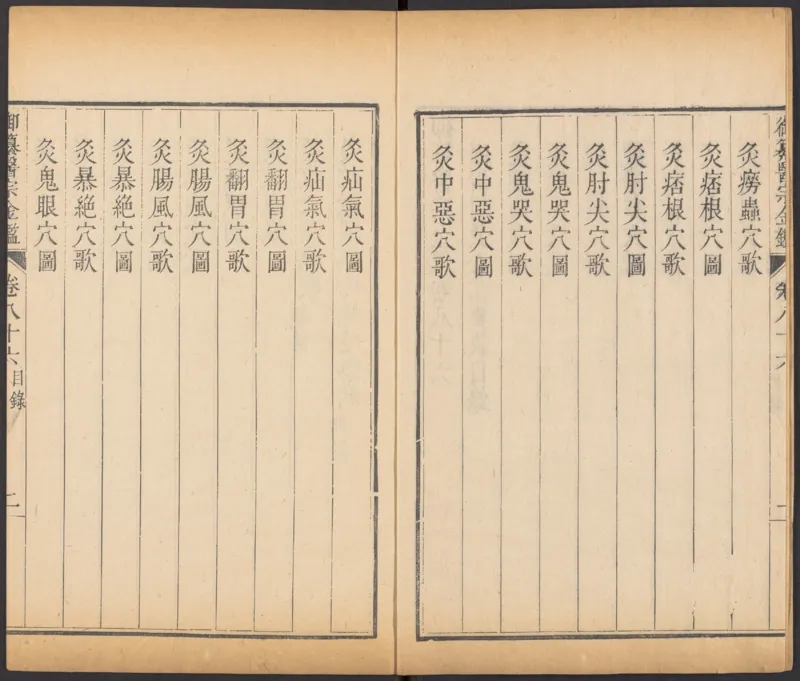 御纂醫宗金鑑
卷八十六
二
灸癆蟲穴歌
灸痞根穴圖
灸痞根穴歌
灸肘尖穴圖
灸肘尖穴歌
灸鬼哭穴圖
灸鬼哭穴歌
灸中惡穴圖
灸中惡穴歌
灸疝氣穴圖
灸疝氣穴歌
灸翻胃穴圖
灸翻胃穴歌
灸腸風穴圖
灸腸風穴歌
灸暴絶穴圖
灸暴絶穴歌
灸鬼眼穴圖
御纂醫宗金鑑
卷八十六
目錄
二